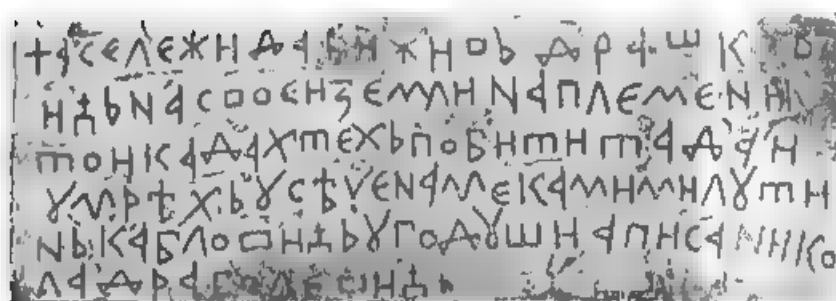 +АСЕЛЕЖИДАБИЖИВЬДРАШКО
ИЋЬНАСВОЕИЗЕМЛИНАПЛЕМЕНИ
ТОИКАДАХТЕХЬПОБИТИТАДАИ
ꙊМРѢХЬꙊСѢЧЕНАМЕКАМИМИЛꙊТИ
НЬКАБЛОВИЋЬꙊГОДꙊШИАПИСАНИКО
ЛАДРАГОЛЕВИЋЬ